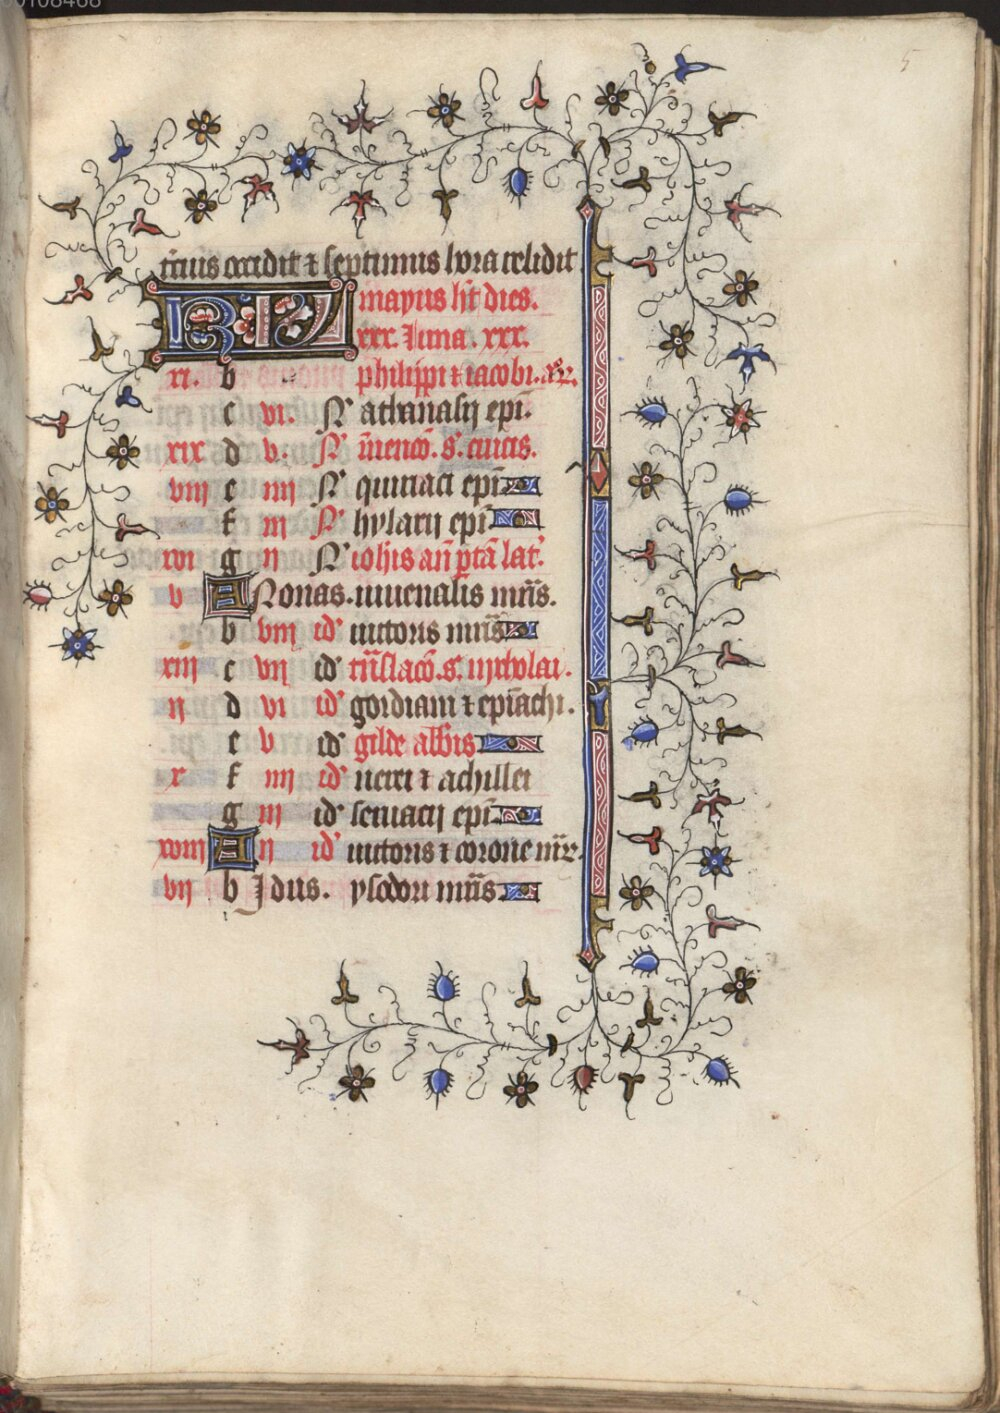 00108468
5
t̄cius occidit ⁊ septimus hora relidit
KL mayus ht̄ dies.
xxx. luna. xxx.
xi. b philippi ⁊ iacobi. ap̄.
c vi. N̄ athanasij epī.
xix d v. N̄ īuencō. s̄. crucis.
viij e iiij N̄ quiriaci epī
f iij N̄ hylarij epī
xvi g ij N̄ ioh̄is an̄ p̄tā lat̄.
v A Nonas. iuuenalis mr̄is.
b viij id̄ victoris mr̄is
xiij c vij id̄ tr̄slacō. s̄. nycholai.
ij d vi id̄ gordiani ⁊ epīachi.
e v id̄ gilde abb̄is
x f iiij id̄ nerei ⁊ achillei
g iij id̄ seruacij epī
xviij A ij id̄ victoris ⁊ corone mr̄.
vij b Idus. ysodori mr̄is